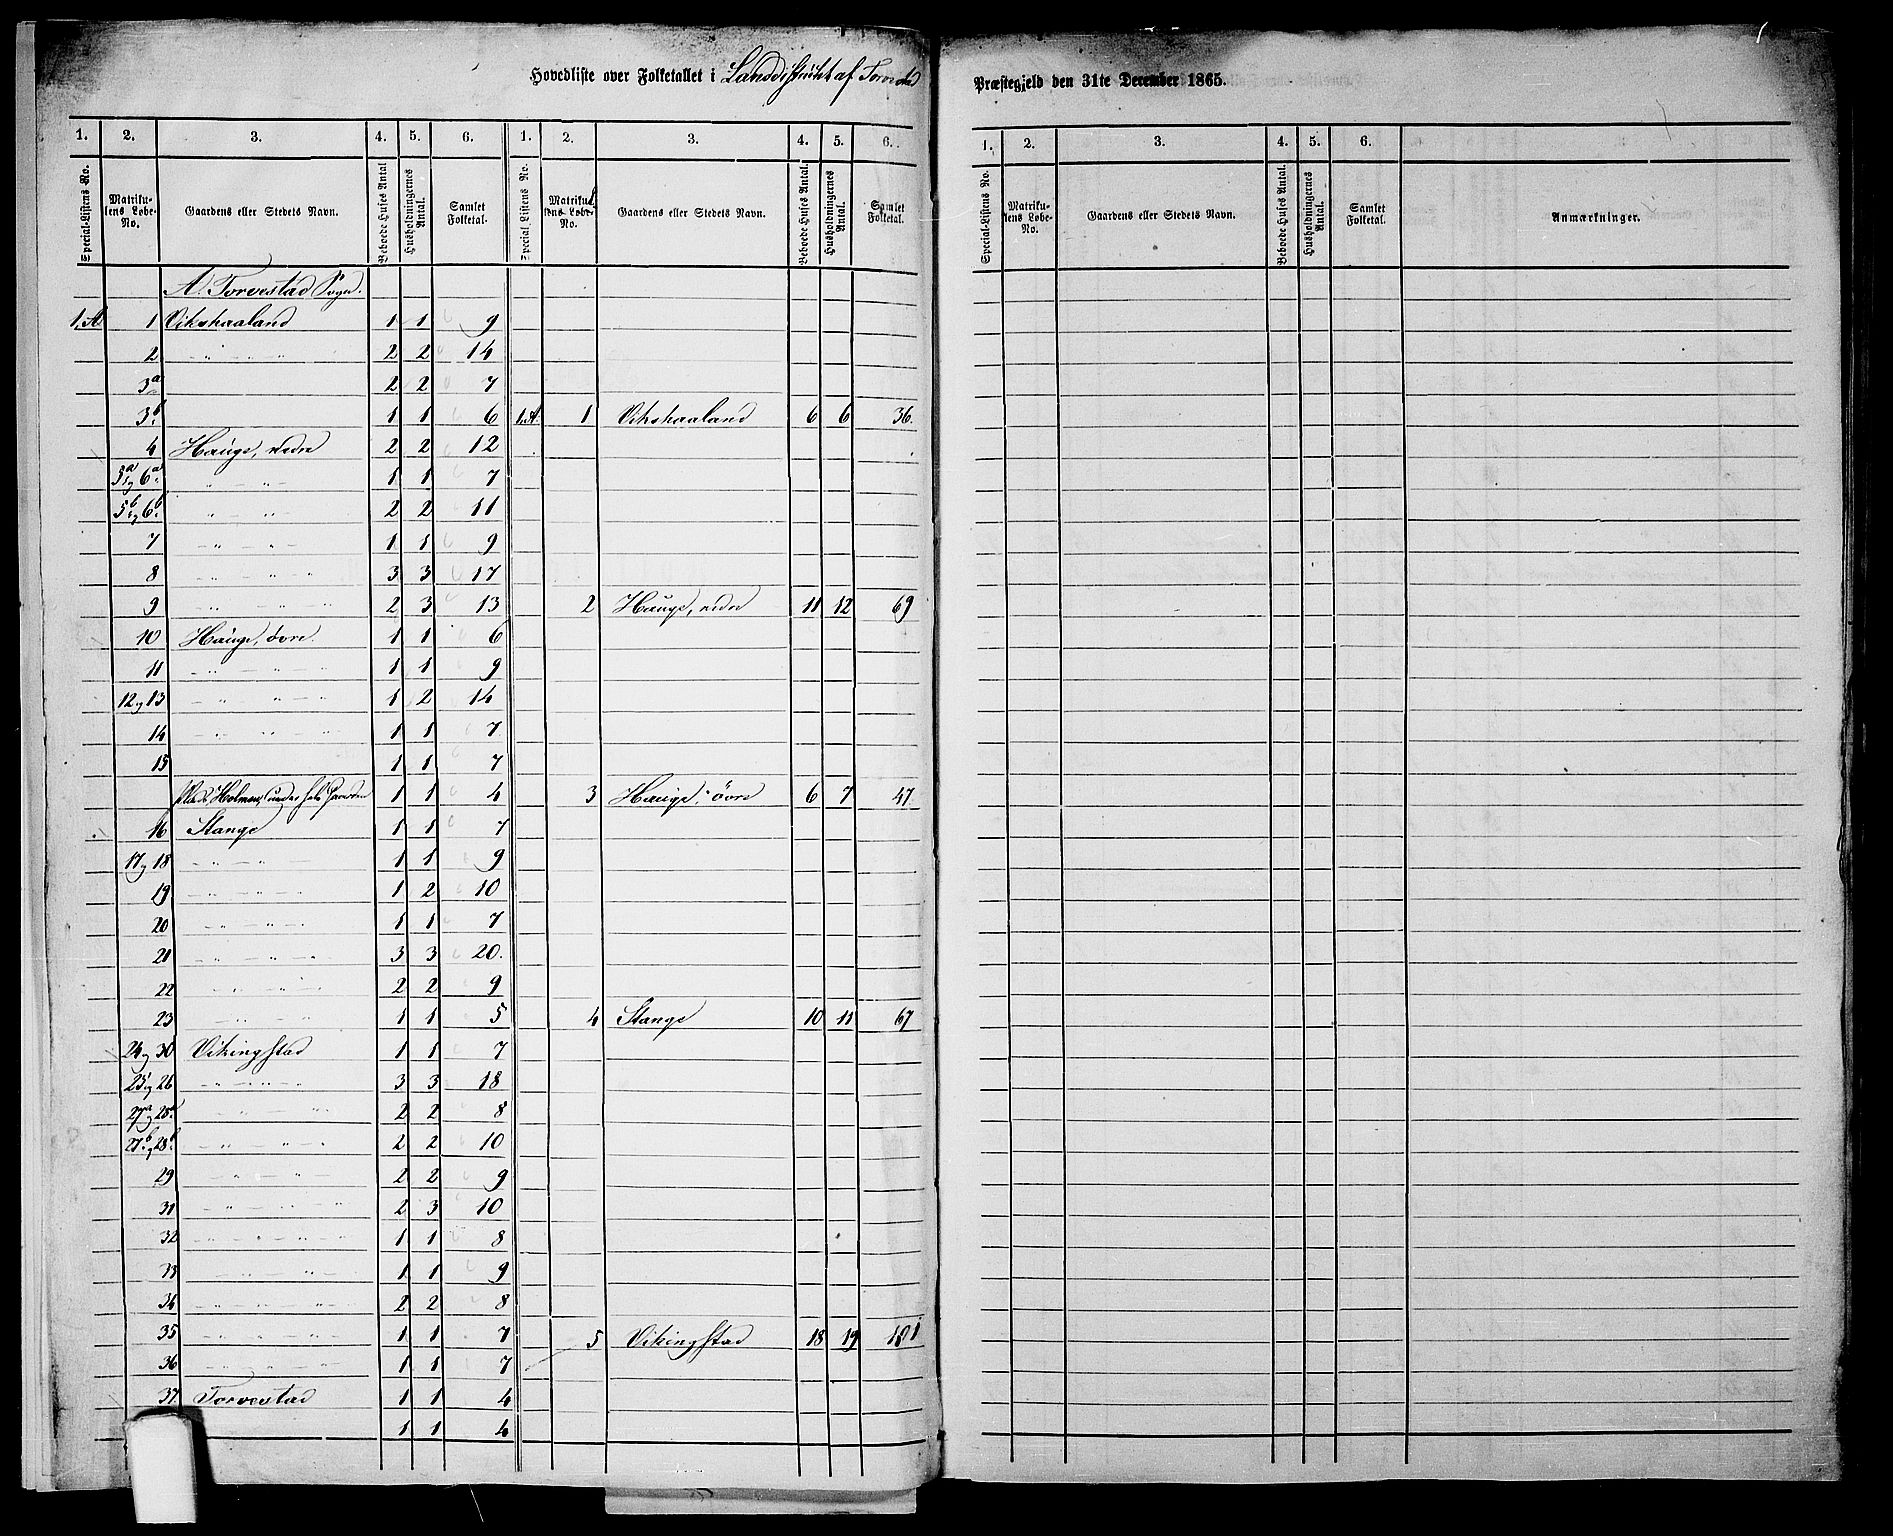 Hovedliste over Folketallet i Landdistriktet af Torvestad
Præstegjeld den 31te December 1865.
1. 2. 3. 4. 5. 6. 1. 2. 3. 4. 5. 6.
Special-Listens No. Matriku-lens Løbe-No. Gaardens eller Stedets Navn. Beboede Huses Antal Husholdningernes Antal. Samlet Folketal. Special-Listens No. Matriku-lens Løbe-No. Gaardens eller Stedets Navn. Beboede Huses Antal. Husholdningernes Antal. Samlet Folketal.
A. Torvestad Sogn.
1. A 1 Vikshaaland 1 1 9
2 - " - " - " 2 2 14
3a 2 2 7
3b 1 1 6 1. A. 1 Vikshaaland 6 6 36.
4 Hauge, nedre 2 2 12
5a og 6a " - " - 1 1 7
5b og 6b " " - 2 2 11
7 - " - " - 1 1 9
8 - " - " " 3 3 17
9 " - " - " 2 3 13 2 Hauge, nedre 11 12 69
10 Hauge, övre. 1 1 6
11 - " - " - " 1 1 9
12 og 13 - " - " - " 1 2 14
14 - " - " - " - 1 1 7
15 1 1 7
Plads Holmen, under hele Gaarden 1 1 4 3 Hauge, övre 6 7 47
16 Stange 1 1 7
17 og 18 - " - " - 1 1 9
19 - " - " - 1 2 10
20 - " - " - 1 1 7
21 - " - " - " 3 3 20.
22 - " - " - 2 2 9
23 - " - " 1 1 5 4 Stange 10 11 67
24 og 30 Vikingstad 1 1 7
25 og 26 - " - " - " 3 3 18
27a og 28a - " - " 2 2 8
27b og 28b - " - " - " 2 2 10
29 - " - " 2 2 9
31 - " - " - " 2 3 10
32 - " - " - " - 1 1 8
33 - " - " - 1 1 9
34 - " - " - " - 2 2 8
35 - " - " - " - 1 1 7 5 Vikingstad 18 19 101
36 - " - " - " 1 1 7
37 Torvestad 1 1 4
1 1 4
1. 2. 3. 4. 5. 6.
Special-Listens No. Matriku-lens Løbe-No. Gaardens eller Stedets Navn. Beboede Huses Antal. Husholdningernes Antal. Samlet Folketal. Anmærkninger.